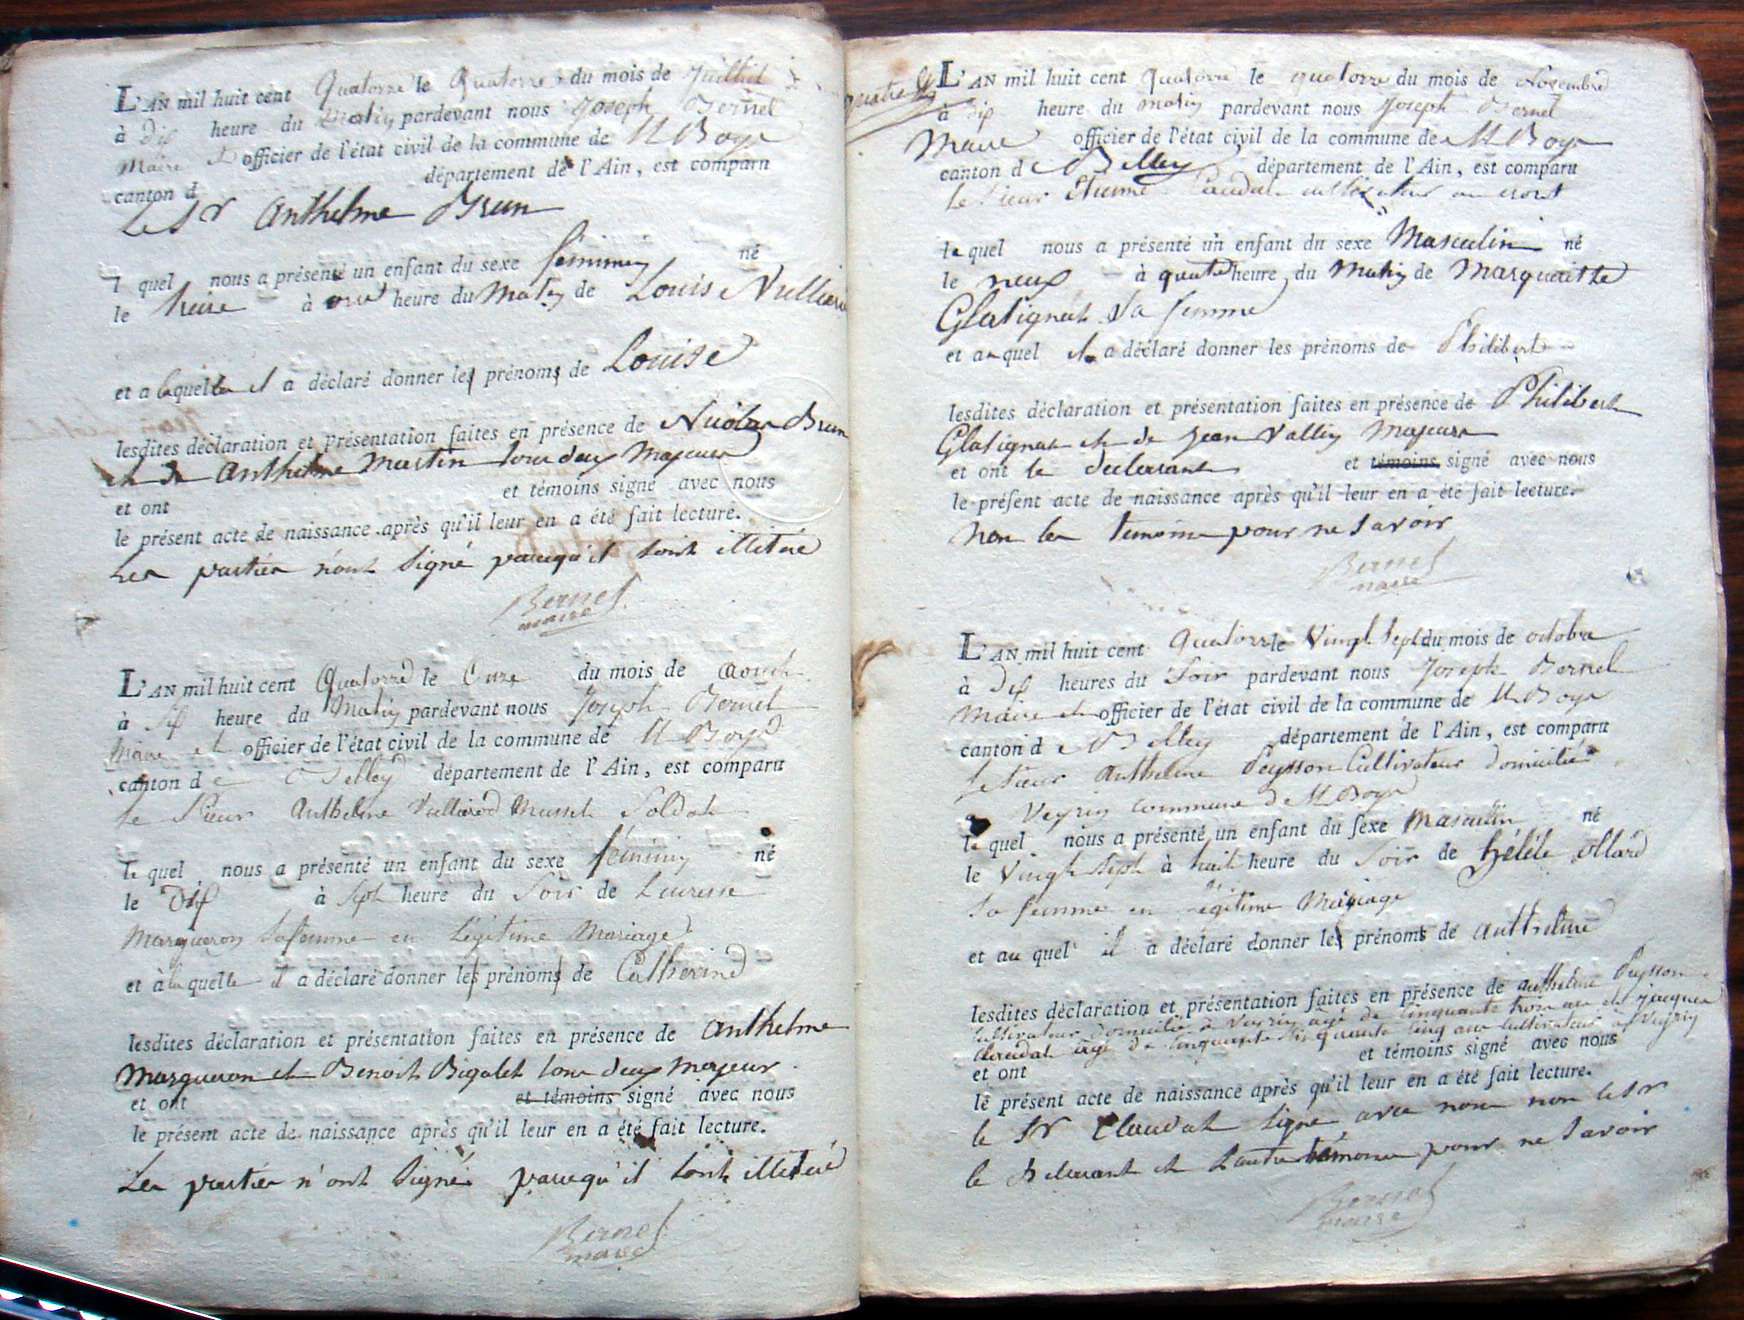 L'AN mil huit cent Quatorze le Quatorze du mois de Juilliet
à dix heure du Matin pardevant nous Joseph Bernet
Maire et officier de l'état civil de la commune de St Boys
canton d département de l'Ain, est comparu
Le Sr Anthelme Brun
l quel nous a présenté un enfant du sexe féminin né
le treize à onze heure du Matin de Louise Vullierod
et a laquelle il a déclaré donner les prénoms de Louise
lesdites déclaration et présentation faites en présence de Nicolas Brun
et de Anthelme Martin tous deux Majeurs
et ont et témoins signé avec nous
le présent acte de naissance après qu'il leur en a été fait lecture.
Les parties n'ont Signé parcequ'il sont illitéré
Bernet
maire
L'AN mil huit cent Quatorze le Onze du mois de Aoust
à Six heure du Matin pardevant nous Joseph Bernet
Maire et officier de l'état civil de la commune de St Boys
canton de Belley département de l'Ain, est comparu
le Sieur Anthelme Vullierod Soldat
le quel nous a présenté un enfant du sexe féminin né
le Dix à Sept heure du Soir de Lucresse
Margueron Sa femme en Légitime Mariage
et à la quelle il a déclaré donner les prénoms de Catherine
lesdites déclaration et présentation faites en présence de Anthelme
Margueron et Benoit Bigalet tous deux Majeur
et ont et témoins signé avec nous
le présent acte de naissance après qu'il leur en a été fait lecture.
Les parties n'ont Signé parcequ'il sont illitéré
Bernet
maire
L'AN mil huit cent Quatorze le quatorze du mois de Novembre
à dix heure du matin pardevant nous Joseph Bernet
Maire officier de l'état civil de la commune de St Boys
canton de Belley département de l'Ain, est comparu
le Sieur Etienne Claudat cultivateur au
le quel nous a présenté un enfant du sexe Masculin né
le neuf à quatre heure du Matin de Margueritte
Glatignat Sa femme
et au quel il a déclaré donner les prénoms de Philibert
lesdites déclaration et présentation faites en présence de Philibert
Glatignat et de Jean Vallin Majeurs
et ont le declarant et témoins signé avec nous
le présent acte de naissance après qu'il leur en a été fait lecture.
Non les temoins pour ne Savoir
Bernet
maire
L'AN mil huit cent Quatorze le Vingt Sept du mois de octobre
à Dix heures du Soir pardevant nous Joseph Bernet
Maire et officier de l'état civil de la commune de St Boys
canton de Belley département de l'Ain, est comparu
le Sieur Anthelme Peysson Cultivateur Domicilié
Veyrin commune de St Boys
le quel nous a présenté un enfant du sexe Masculin né
le Vingt Sept à huit heure du Soir de hélène Ollard
Sa femme en légitime Mariage
et au quel il a déclaré donner les prénoms de Anthelme
lesdites déclaration et présentation faites en présence de Anthelme Peysson
Cultivateur Domicilié à Veyrin agé de Cinquante trois ans et Jacques
Claudat agé de cinquante cinq ans cultivateur à Veyrin
et ont et témoins signé avec nous
le présent acte de naissance après qu'il leur en a été fait lecture.
le Sr Claudat Signé avec nous non le Sr
le Déclarant et L'autre témoin pour ne Savoir
Bernet
maire